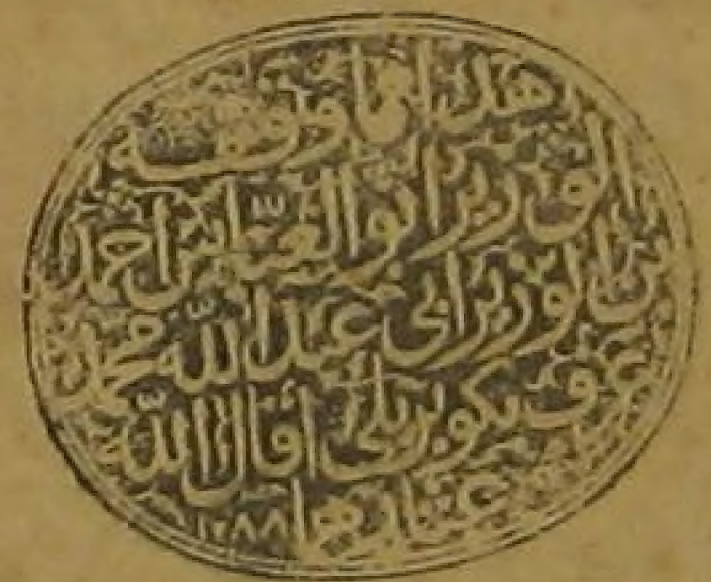 هذا ما وقفه
الوزير ابو العباس احمد
بن الوزير ابي عبد الله محمد
عرف بكوپريلي اقال الله
عثارهما
١٠٨٨